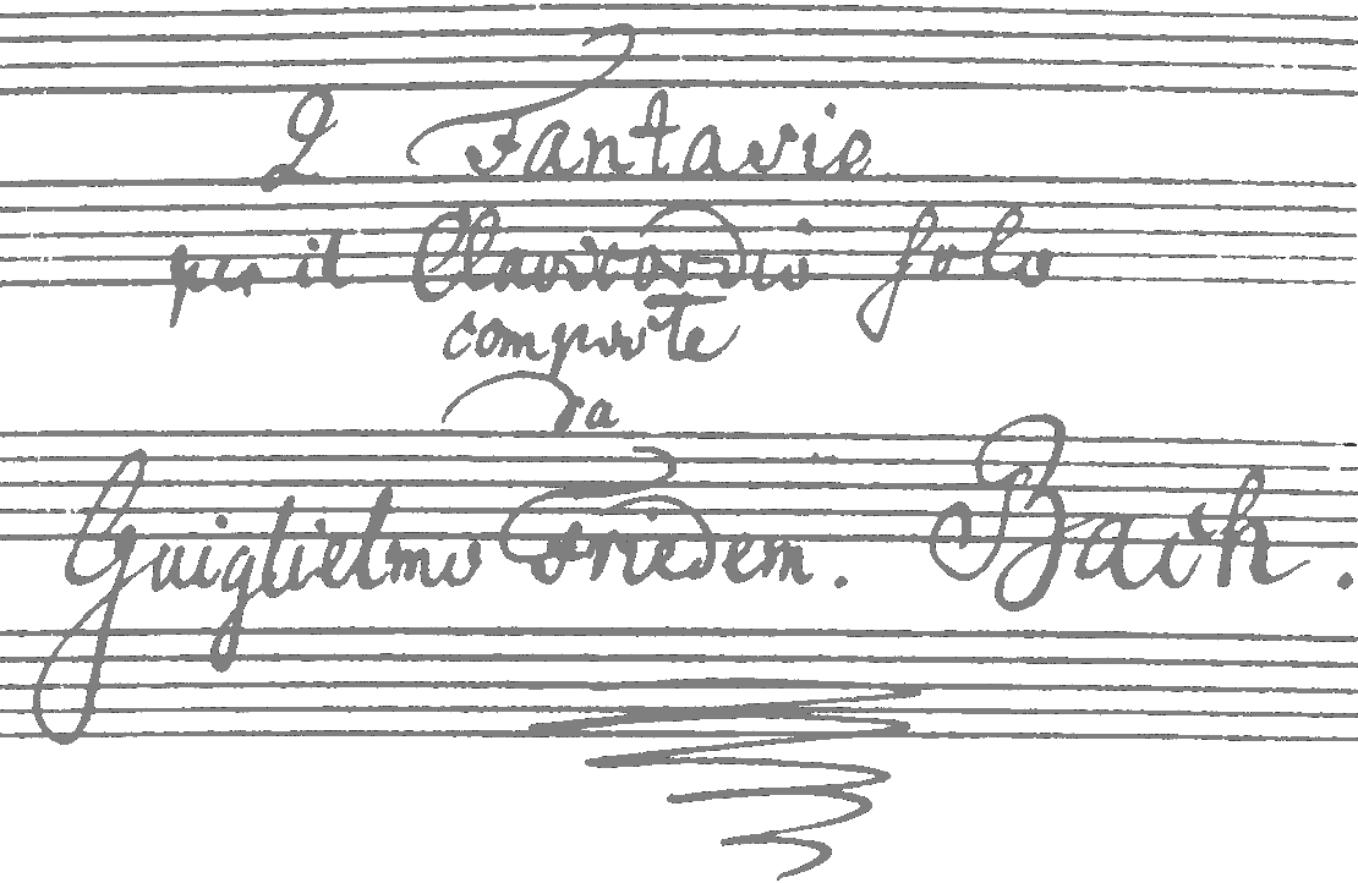 2 Fantasie
per il Clavicordio Solo
composte
da
Guiglielmo Friedem. Bach.